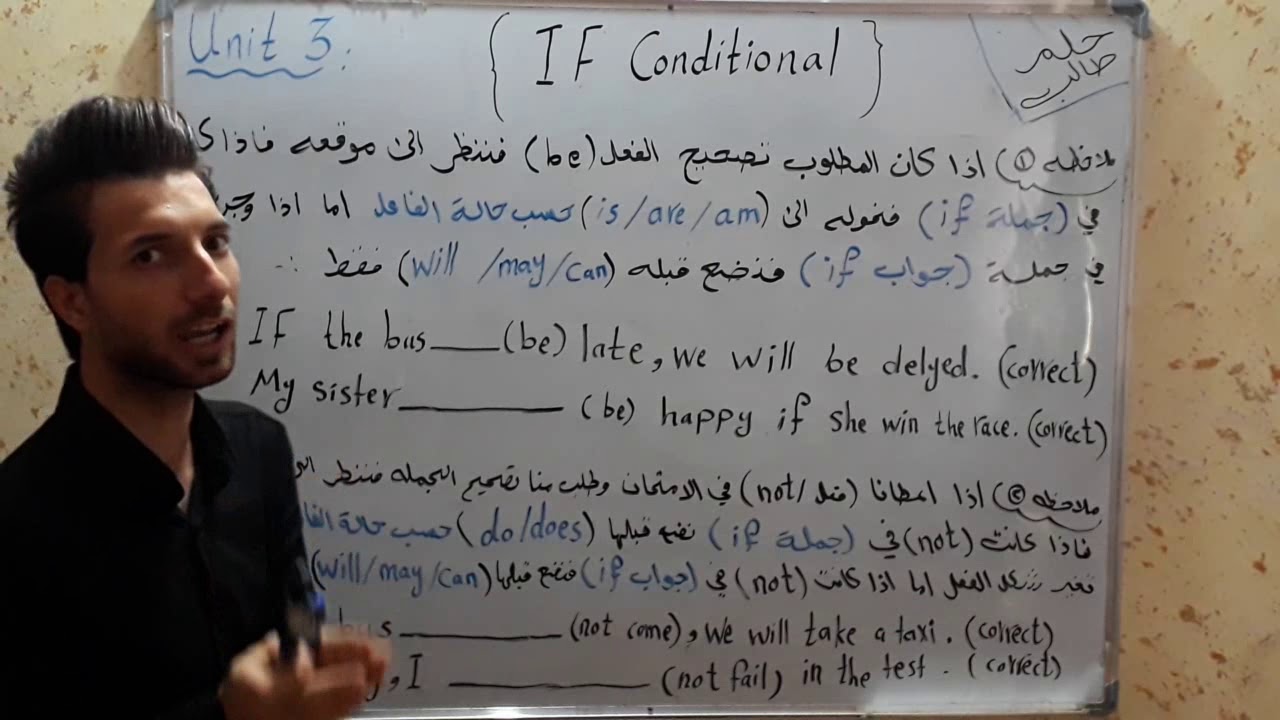 Unit 3:
{ IF Conditional }
حلم
طالب
ملاحظه ①) اذا كان المطلوب تصحيح الفعل (be) فننظر الى موقعه فاذا
في (جملة if) فنحوله الى (is/are/am) حسب حالة الفاعل اما اذا
في جملة (جواب if) فنضع قبله (will/may/can) فقط :-
IF the bus ____ (be) late, we will be delyed. (correct)
My sister ________ (be) happy if she win the race. (correct)
ملاحظه ②) اذا اعطانا (فعل/not) في الامتحان وطلب منا تصحيح الجمله فننظر
فاذا كانت (not) في (جملة if) نضع قبلها (do/does) حسب حالة
نغير شكل الفعل اما اذا كانت (not) في (جواب if) فنضع قبلها (will/may/can)
________ (not come), we will take a taxi. (correct)
, I __________ (not fail) in the test. (correct)